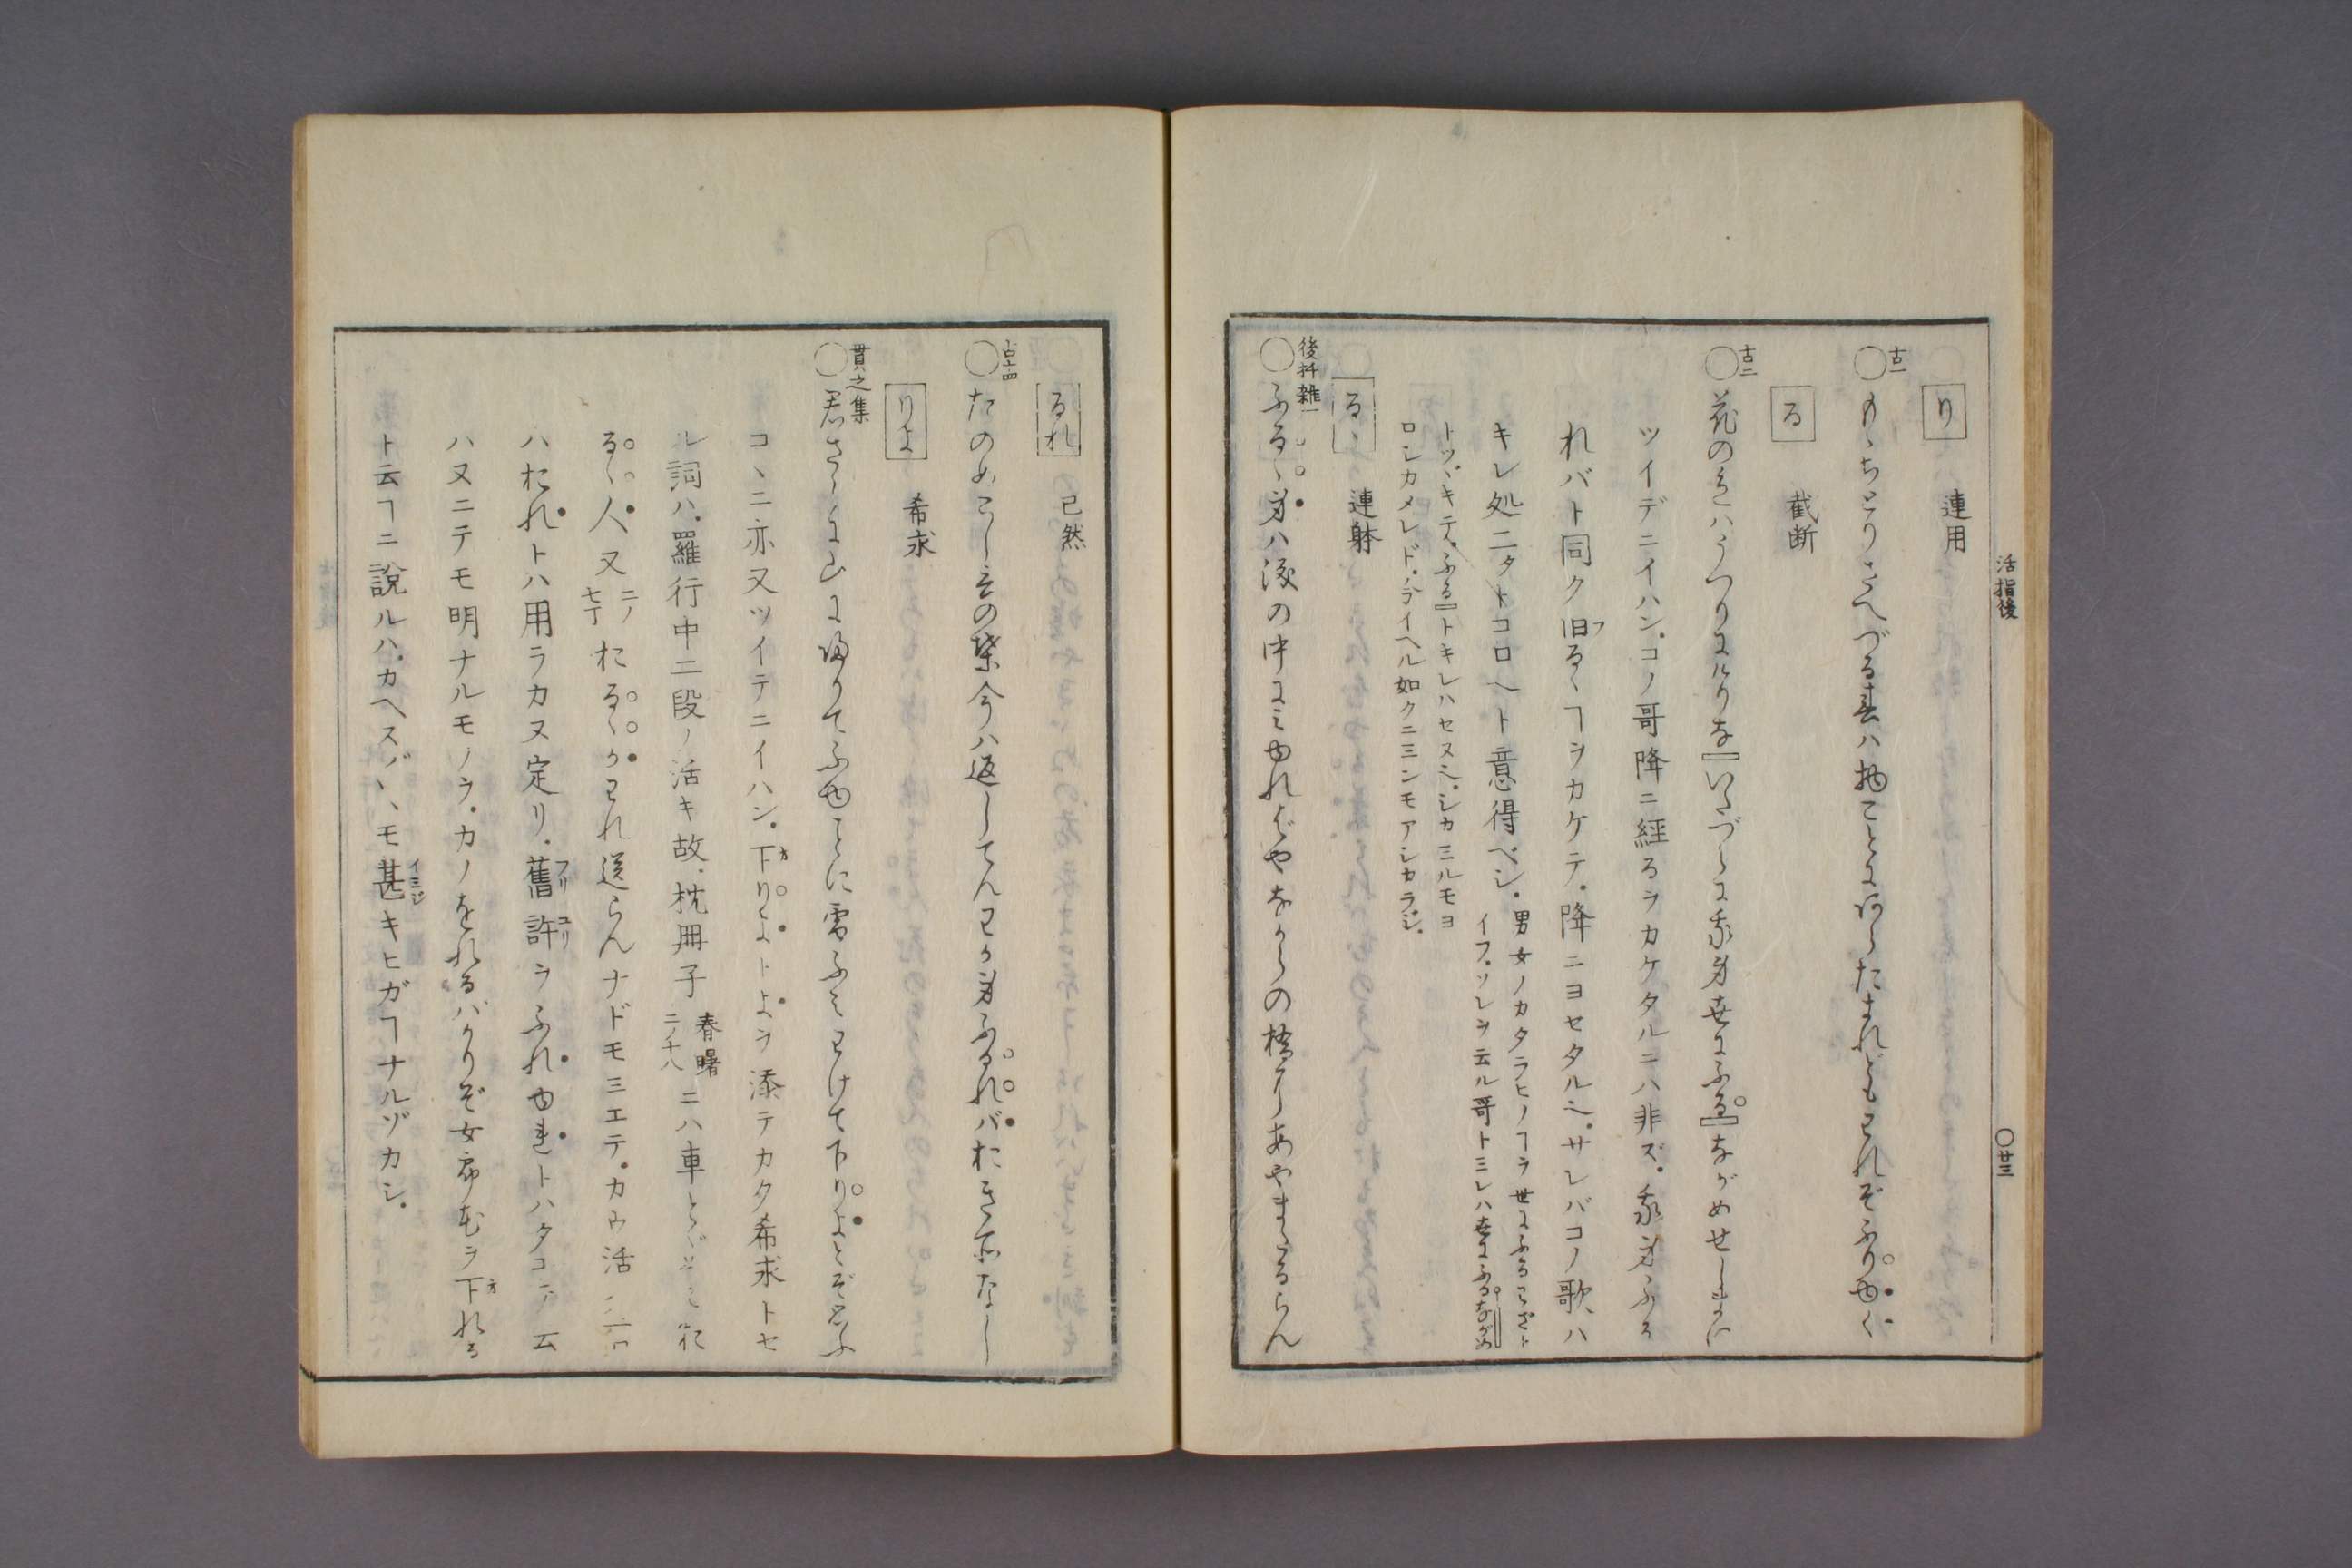 活指後
〇廿三
り 連用
古一
〇もゝちとりさへづる春ハ物ことにあらたまれどもわれぞふりゆく
る 截断
古二
〇花のいろハうつりにけりないたづらに我身世にふるながめせしまに
ツイデニイハン.コノ哥降ニ経るヲカケタルニハ非ズ.我身ふる
れバト同ク旧るゝヿヲカケテ.降ニヨセタル也.サレバコノ歌ハ
キレ処二タトコロヘト意得ベシ.男女ノカタラヒノヿヲ世にふるわざト
イフ.ソレヲ云ル哥トミレハ世にふるながめ
トツヾキテ.ふるトキレハセヌ也.シカミルモヨ
ロシカメレド.今イヘル如クニミンモアシカラジ.
るゝ 連躰
後拾雑一
〇ふるゝ身ハ涙の中にみゆればやながらの橋にあやまたるらん
るれ 已然
古十四
〇たのめこし言の葉今ハ返してんわが身ふるれバおき所なし
りよ 希求
貫之集
〇君さらに山に帰りてふゆことに雪ふみわけて下りよとぞ思ふ
コヽニ亦又ツイテニイハン.下りよトよヲ添テカク希求トセ
ル詞ハ.羅行中二段ノ活キ故.枕冊子春曙二ノ十八ニハ車とゞ
るゝ人又二ノ七丁おるゝかわれ送らんナドモミエテ.カク活
ハおれトハ用ラカヌ定リ.舊許ヲふれゆれトハタコテ云
ハ又ニテモ明ナルモノヲ.カノをれるバかりぞ女郎花ヲ下れる
ト云ヿニ説ルハ.カヘスバヽモ甚キヒガヿナルヅカシ.